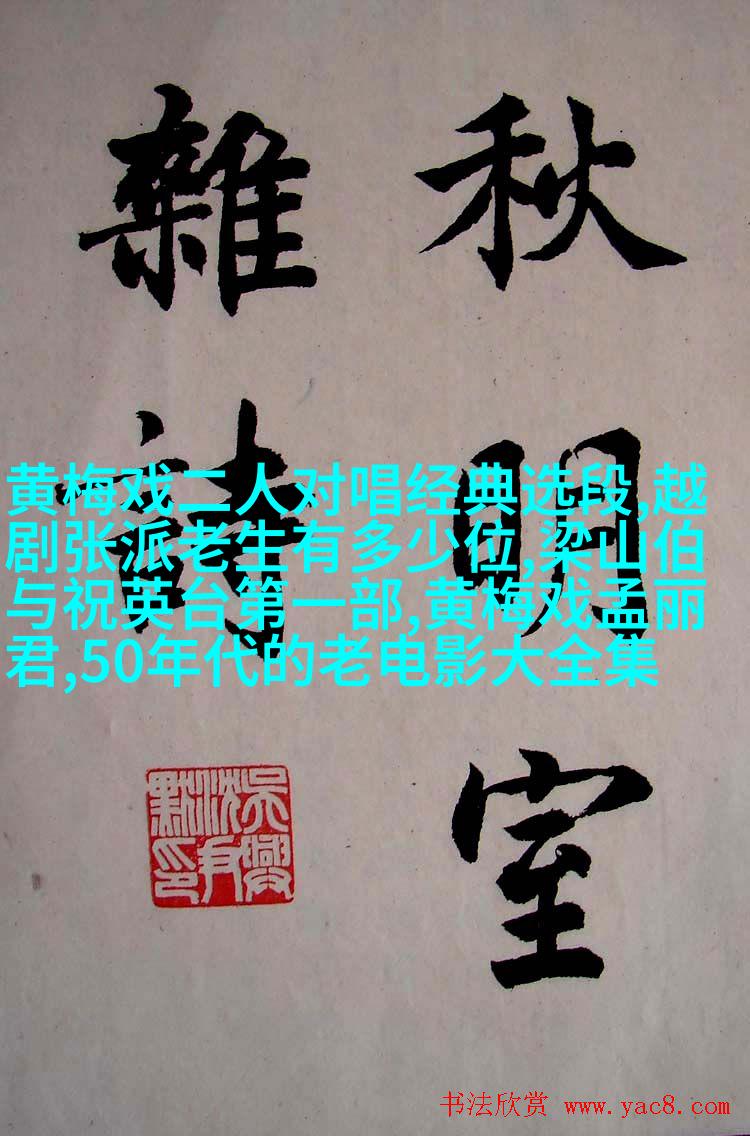 秋明室
雜詩
黄梅戏二人对唱经典选段,越
剧张派老生有多少位,梁山伯
与祝英台第一部,黄梅戏孟丽
君,50年代的老电影大全集
吳興
沈尹
默印
书法欣赏 www.yac8.com